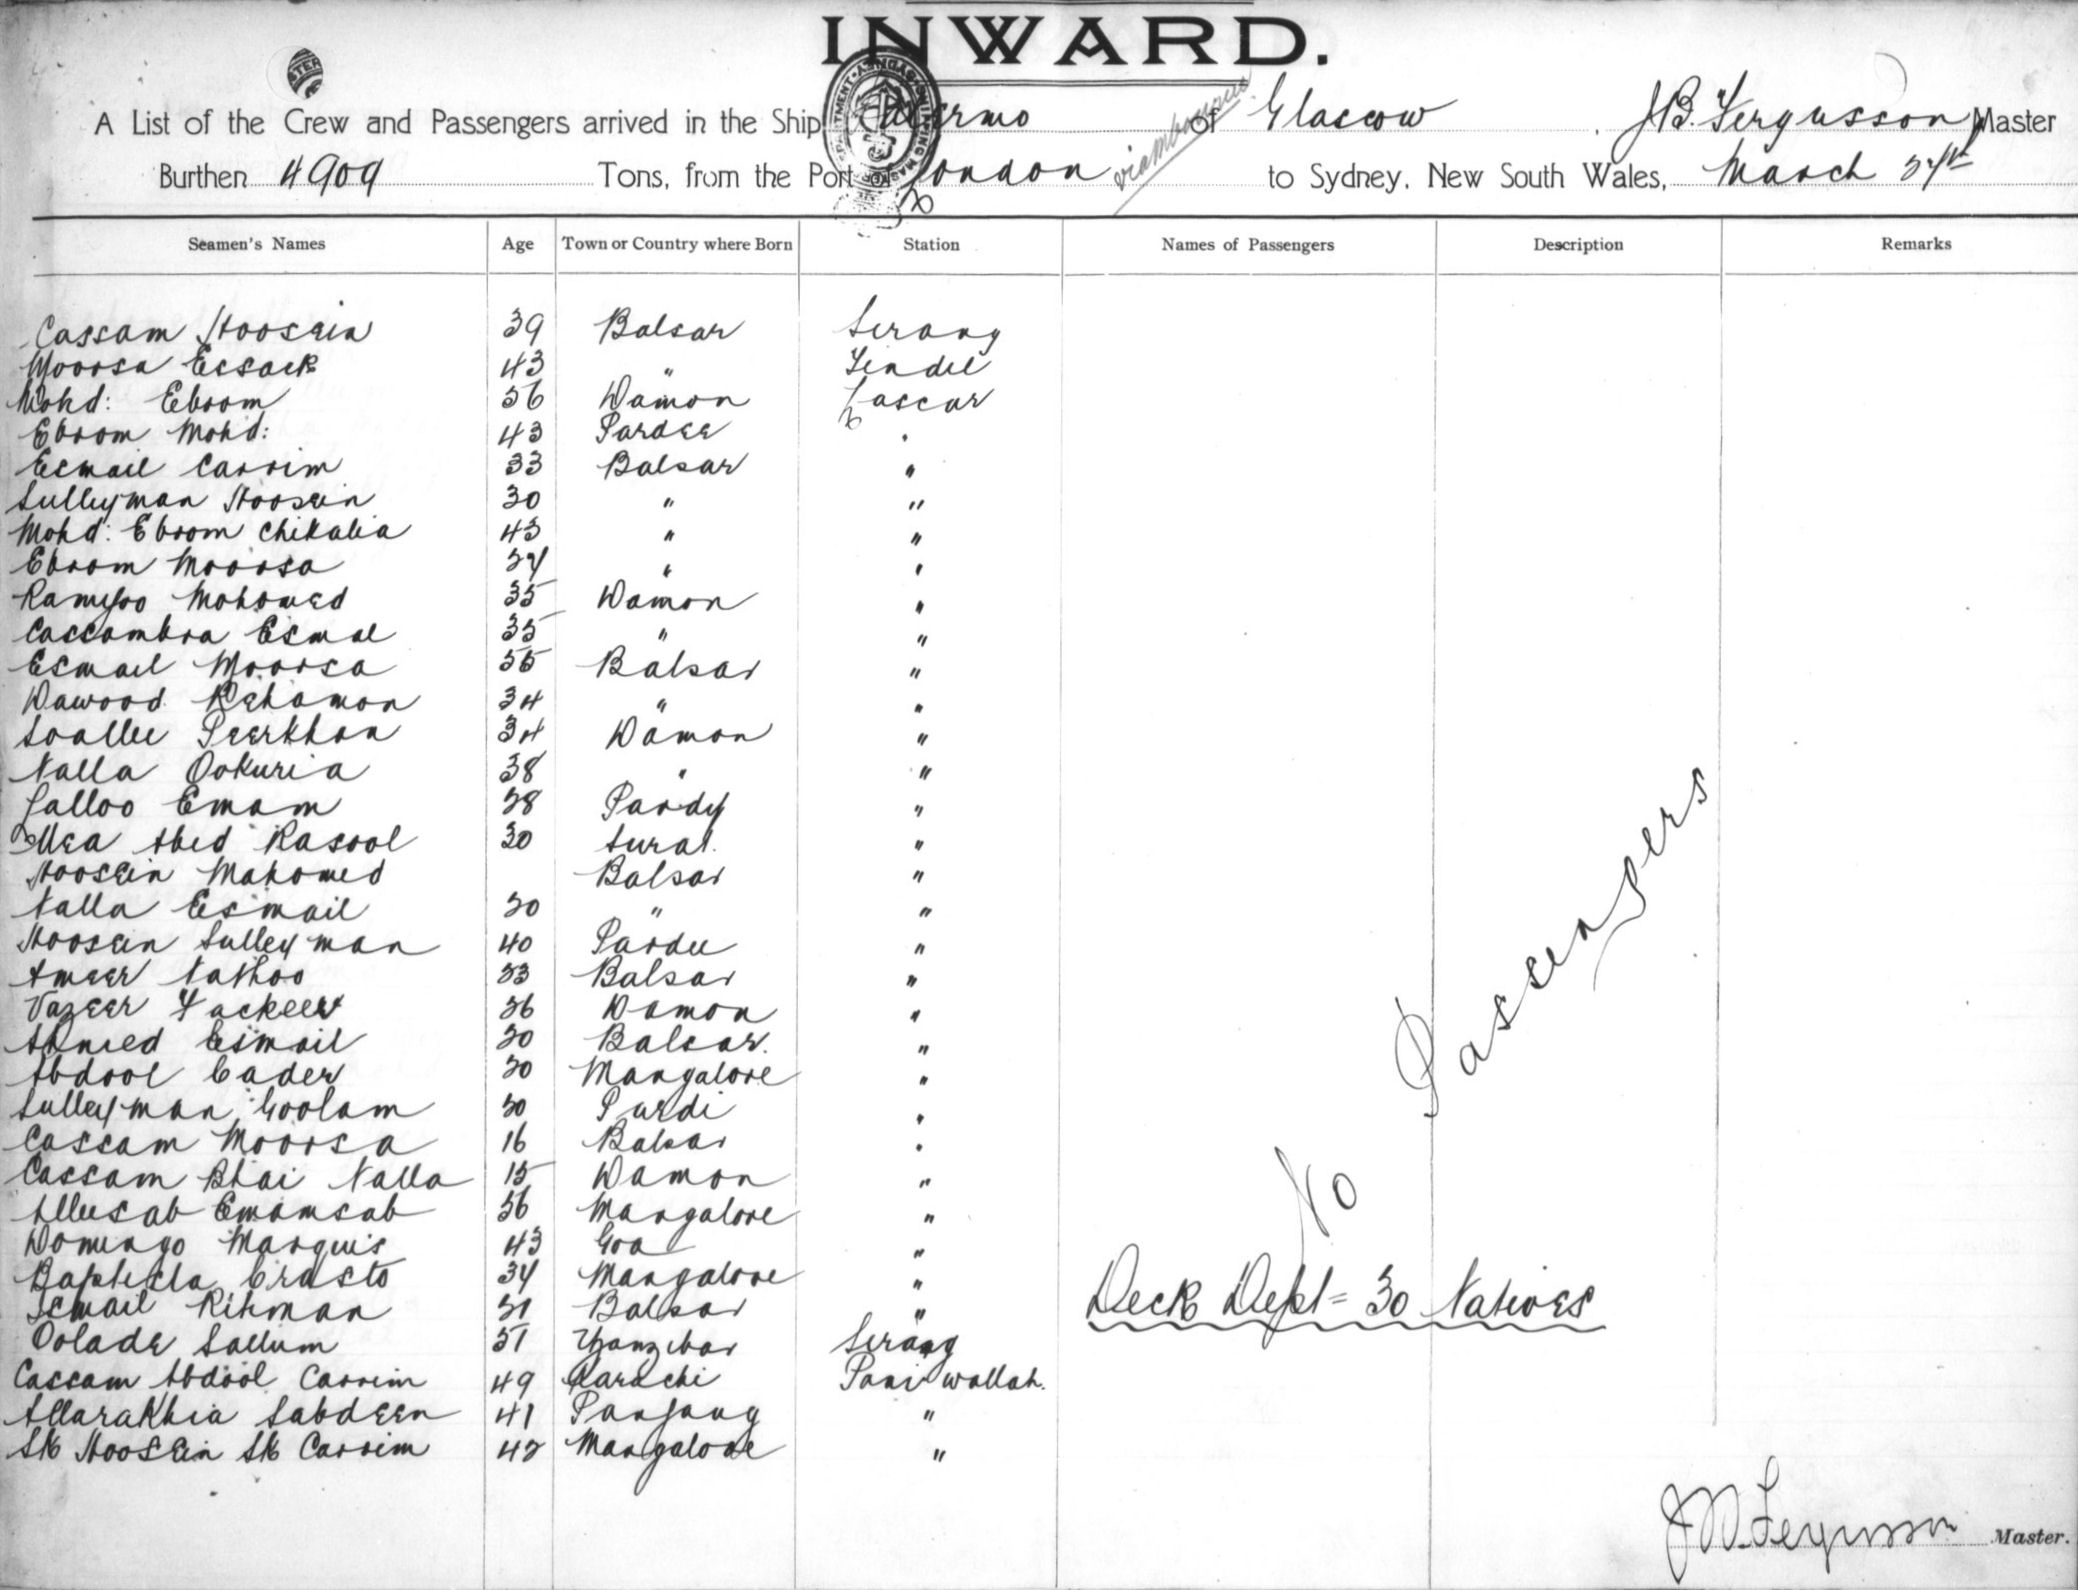 INWARD.
A List of the Crew and Passengers arrived in the Ship Palermo of Glascow, J.B. Fergusson Master
Burthen 4909 Tons, from the Port London to Sydney, New South Wales, March
Seamen's Names Age Town or Country where Born Station Names of Passengers Description Remarks
Cassam Hoosein 39 Balsar Serang
Moorsa Essack 43 " Tendel
Mohd: Ebrom 36 Damon Lascar
Ebrom Mohd: 43 Pardee "
Esmail Carrim 33 Balsar "
Sulleyman Hoosein 30 " "
Mohd: Ebrom Chikalia 43 " "
Ebrom Moorsa " "
Mohomed 35 Damon "
Esmal 35 " "
Esmail Moorsa 55 Balsar "
Dawood Rehamon 34 " "
Soallee Peerkhan 34 Damon "
Nalla Ookuria 38 " "
Jalloo Emam 38 Pardy "
Abed Rasool 30 Surat. "
Hoosein Mahomed Balsar "
Nalla Esmail 30 " "
Hoosein Sulleyman 40 Pardee "
Ameer Nathoo 33 Balsar "
Vazeer Fackeer 36 Damon "
Ahmed Esmail 30 Balsar. "
Abdool Cader 30 Mangalore "
Sulleyman Goolam 30 Purdi "
Cassam Moorsa 16 Balsar "
Cassam Bhai Nalla 15 Damon "
Alleesab Emamsab 36 Mangalore "
Domingo Marquis 43 Goa "
Baptista Crasto Mangalore "
Ismail Rihman Balsar "
Oolade Sallum 51 Zanzibar Serang
Cassam Abdool Carrim 49 Karachi Pani wallah.
Allarakhia Sabdeen 41 Panjang "
Sk Hoosein Sk Carrim 42 Mangalore "
No Passengers
Deck Dept = 30 Natives
Fergusson Master.